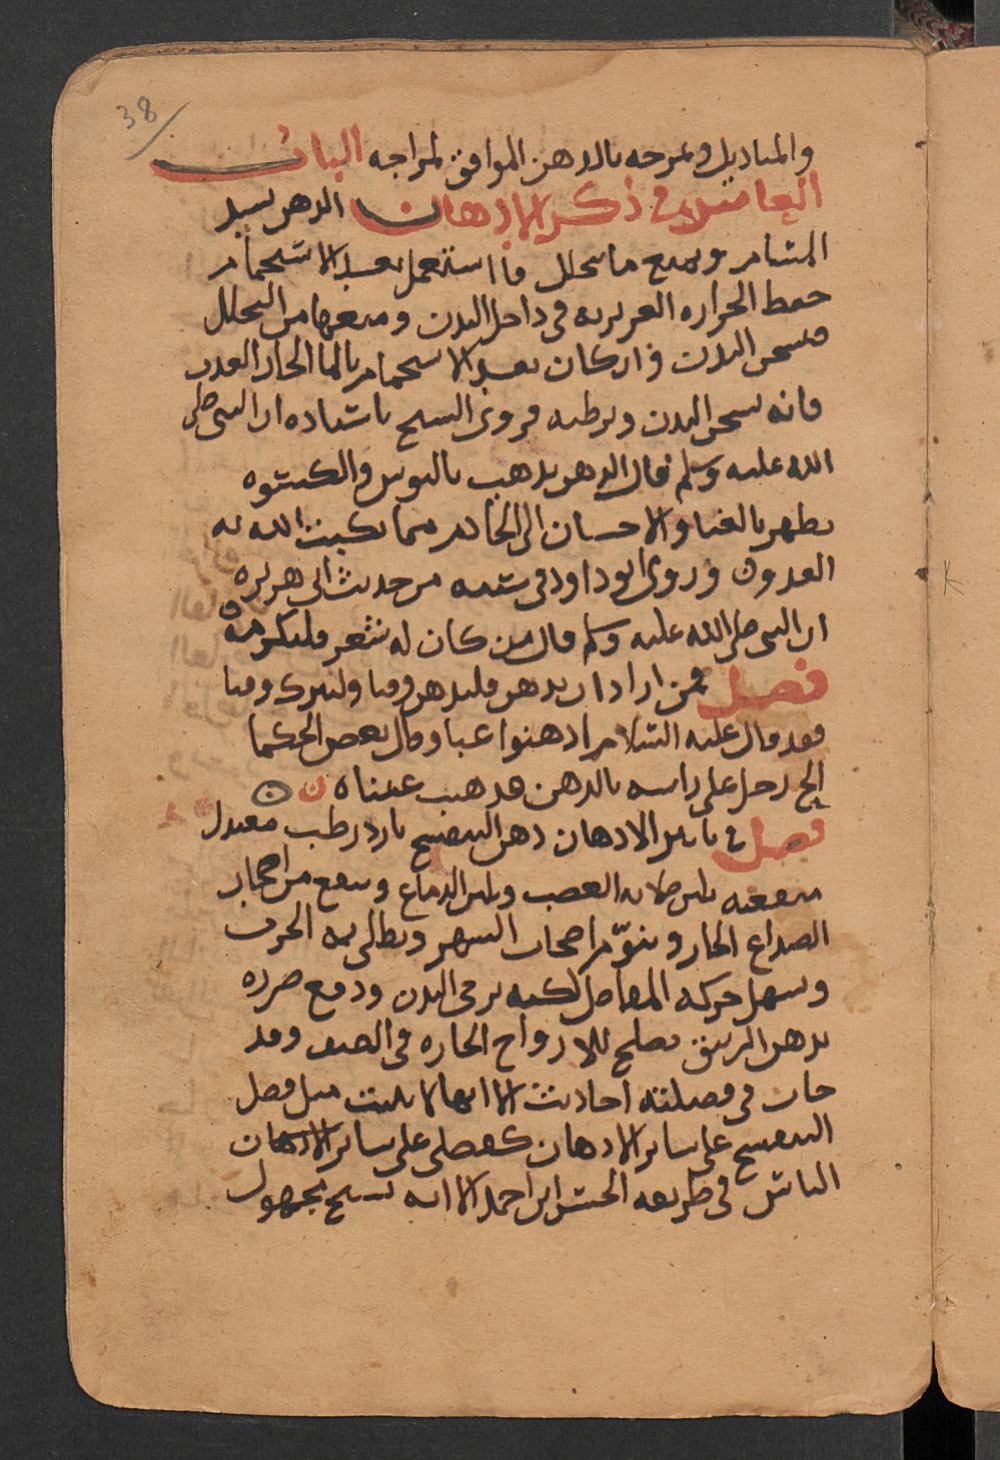 38
والمناديل ويمرخه بالدهن الموافق لمزاجه الباب
العاشر في ذكر الادهان الدهن يسد
المسام ويمنع ما يتحلل فاذا استعمل بعد الاستحمام
حفظ الحرارة الغريزية في داخل البدن ومنعها من التحلل
فيسخن البدن فان كان بعد الاستحمام بالما الحار العذب
فانه يسخن البدن ويرطبه وروى الشيخ باسناده ان النبي صلى
الله عليه وسلم قال الدهن يذهب بالبوس والكسوه
تظهر بالغنا والاحسان الى الخادم مما يكبت الله به
العدو وروى ابو داود في سننه من حديث ابي هريره
ان النبي صلى الله عليه وسلم قال من كان له شعر فليكرمه
فصل ومن اراد ان يدهن فليدهن يوما وليترك يوما
فقد قال عليه السلام ادهنوا غبا وقال بعض الحكما
الح رجل على راسه بالدهن فذهبت عيناه
فصل في تاثير الادهان دهن البنفسج بارد رطب معتدل
منفعته يلين صلابة العصب ويلين الدماغ وينفع من اصحاب
الصداع الحار وينوم اصحاب السهر ويطلى به الجرب
ويسهل حركة المفاصل لكنه يرخي البدن ودفع ضرره
بدهن الزنبق يصلح للارواح الحاره في الصيف وقد
جات في فضيلته احاديث الا انها لا تثبت مثل فضل
البنفسج على ساير الادهان كفضلي على ساير الادهان
الناس في طريقه الحسن ابن احمد الا انه شيخ مجهول